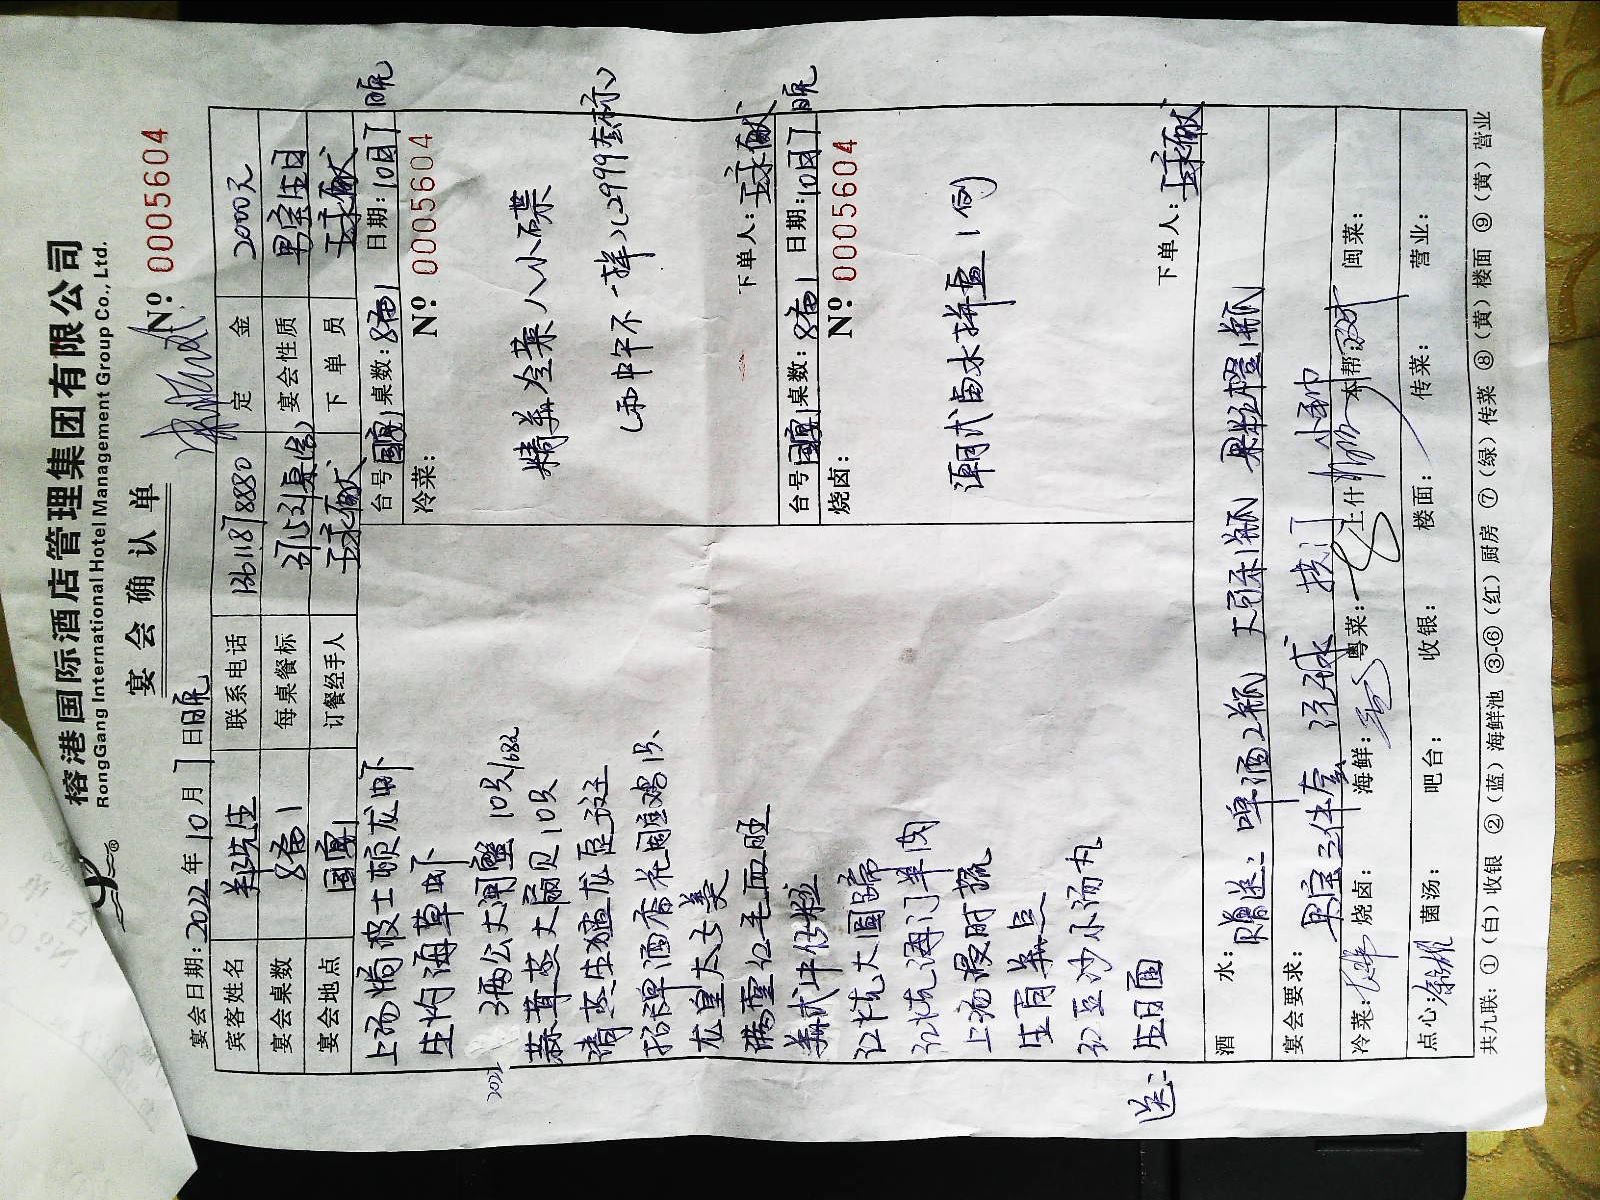 榕港国际酒店管理集团有限公司
RongGang International Hotel Management Group Co., Ltd.
宴会确认单
Nº: 0005604
宴会日期:2022年10月7日晚
宾客姓名 联系电话 13611878880 定金 2000元
宴会桌数 8备1 每桌餐标 宴会性质 男宝生日
宴会地点 国宴1 订餐经手人 下单员
上汤焗波士顿龙虾
生灼海草虾
3两公大闸蟹 10只/682
蒜茸蒸大扇贝10只
清蒸生猛龙趸斑
招牌酒香花雕鸡1只
龙皇太子羹
腾云红毛血旺
美式牛仔粒
红烧大圆蹄
红烧海门羊肉
上汤浸时蔬
红豆沙小汤丸
送:
台号 国宴1 桌数:8备1 日期:10月7 晚
冷菜: Nº 0005604
精美冷菜八小碟
(和中午不一样)(2999套标)
下单人:
台号 国宴1 桌数:8备1 日期:10月7 晚
烧卤: Nº 0005604
潮式卤水拼盘1例
下单人:
酒水: 赠送:啤酒2瓶 大可乐1瓶 果粒橙1瓶
宴会要求: 男宝三件套 汽球 拱门
冷菜: 烧卤: 海鲜: 粤菜: 上什: 本帮: 闽菜:
点心: 菌汤: 吧台: 收银: 楼面: 传菜: 营业:
共九联:①(白)收银 ②(蓝)海鲜池 ③-⑥(红)厨房 ⑦(绿)传菜 ⑧(黄)楼面 ⑨(黄)营业